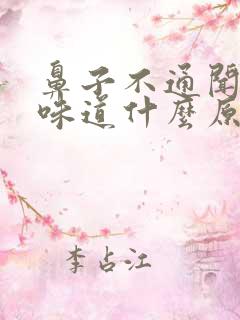 鼻子不通聞
味道什麼原
李占江